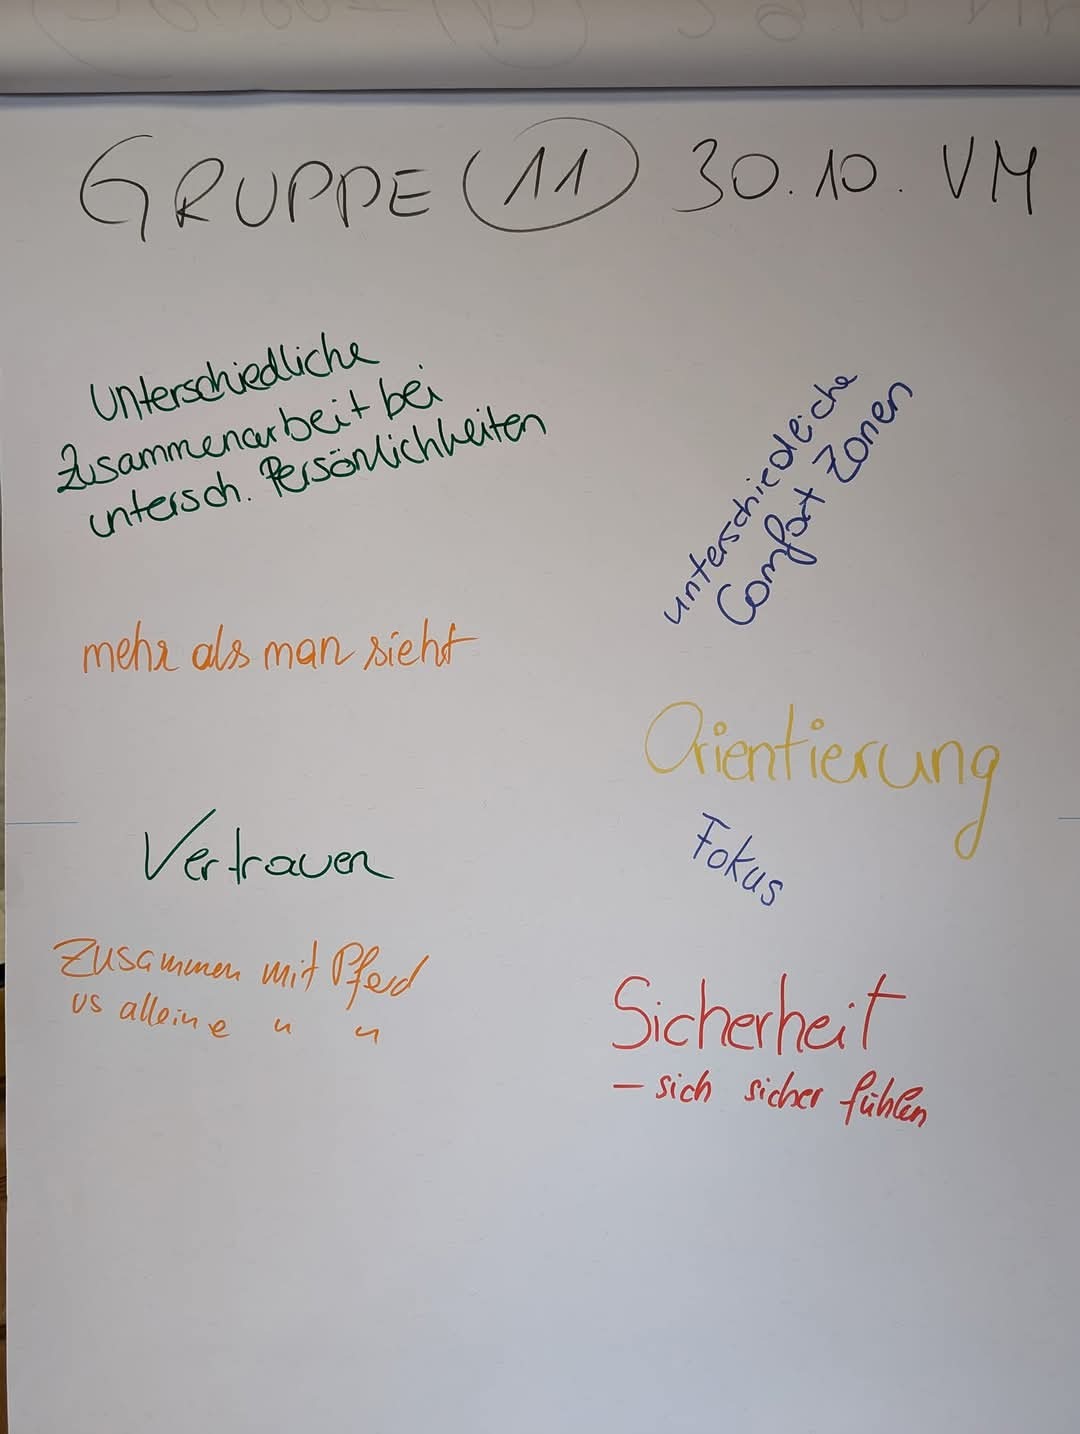 GRUPPE 11 30.10. VM
Unterschiedliche
Zusammenarbeit bei
untersch. Persönlichkeiten
unterschiedleiche
Comfort Zonen
mehr als man sieht
Orientierung
Fokus
Vertrauen
Zusammen mit Pferd
vs alleine " "
Sicherheit
- sich sicher fühlen